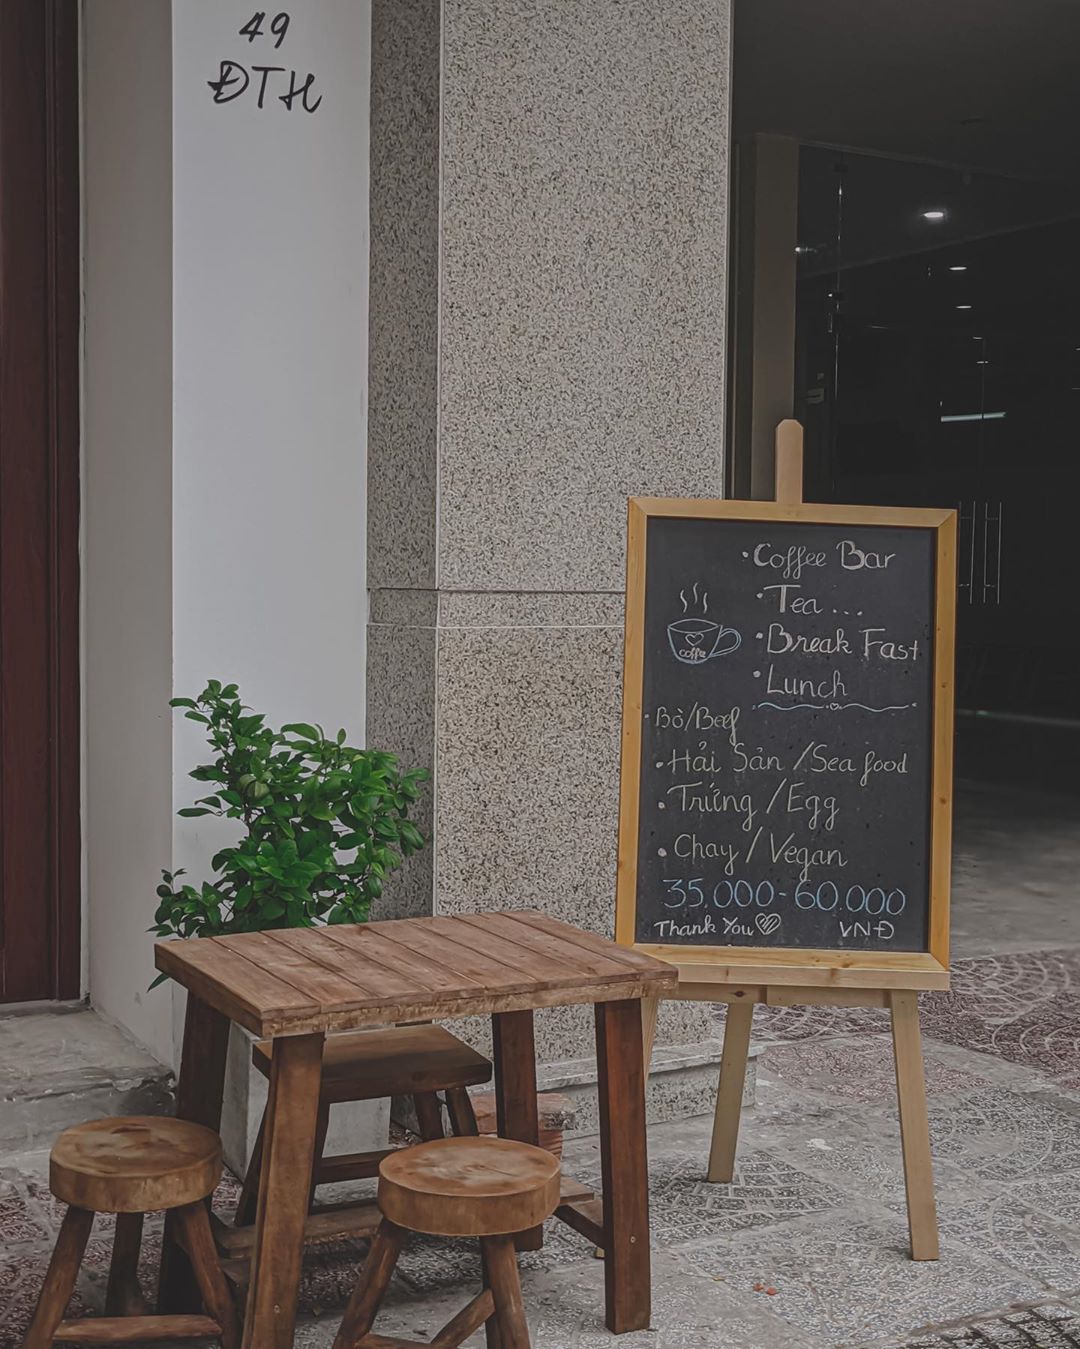 49
ĐTH
• Coffee Bar
• Tea ...
• Break Fast
• Lunch
coffe
• Bò/Beef
• Hải Sản /Sea food
• Trứng /Egg
• Chay / Vegan
35.000 - 60.000
Thank You VNĐ